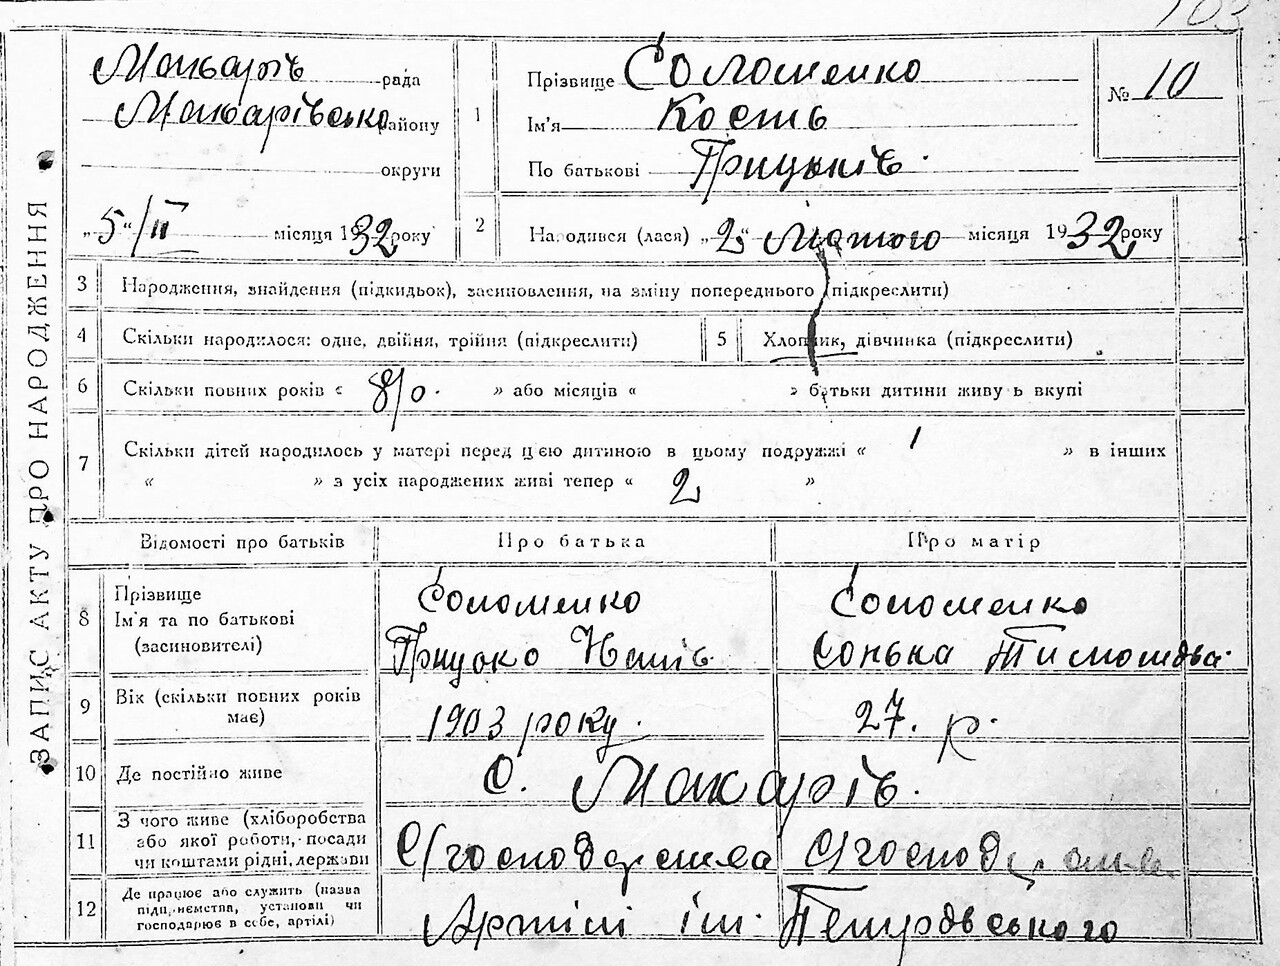 103
ЗАПИС АКТУ ПРО НАРОДЖЕННЯ
Макарів рада
Макарівсько району
округи
„5“/II місяця 1932 року
1 Прізвище Соломенко
Ім'я Кость
По батькові Грицьків.
№ 10
2 Народився (лася) „2“ Лютого місяця 1932 року
3 Народження, знайдення (підкидьок), засиновлення, на зміну попереднього (підкреслити)
4 Скільки народилося: одне, двійня, трійня (підкреслити)
5 Хлопчик, дівчинка (підкреслити)
6 Скільки повних років « 8/о. » або місяців « » батьки дитини живуть вкупі
7 Скільки дітей народилось у матері перед цією дитиною в цьому подружжі « 1 » в інших
« » з усіх народжених живі тепер « 2 »
Відомості про батьків Про батька Про матір
8 Прізвище
Ім'я та по батькові
(засиновителі)
Соломенко
Грицько
Соломенко
Сонька Тимошова.
9 Вік (скільки повних років
має)
1903 року. 27. р.
10 Де постійно живе с. Макарів.
11 З чого живе (хліборобства
або якої роботи, посади
чи коштами рідні, держави
С/господарства С/господ
12 Де працює або служить (назва
підприємства, установи чи
господарює в себе, артілі)
Артілі ім. Петровського